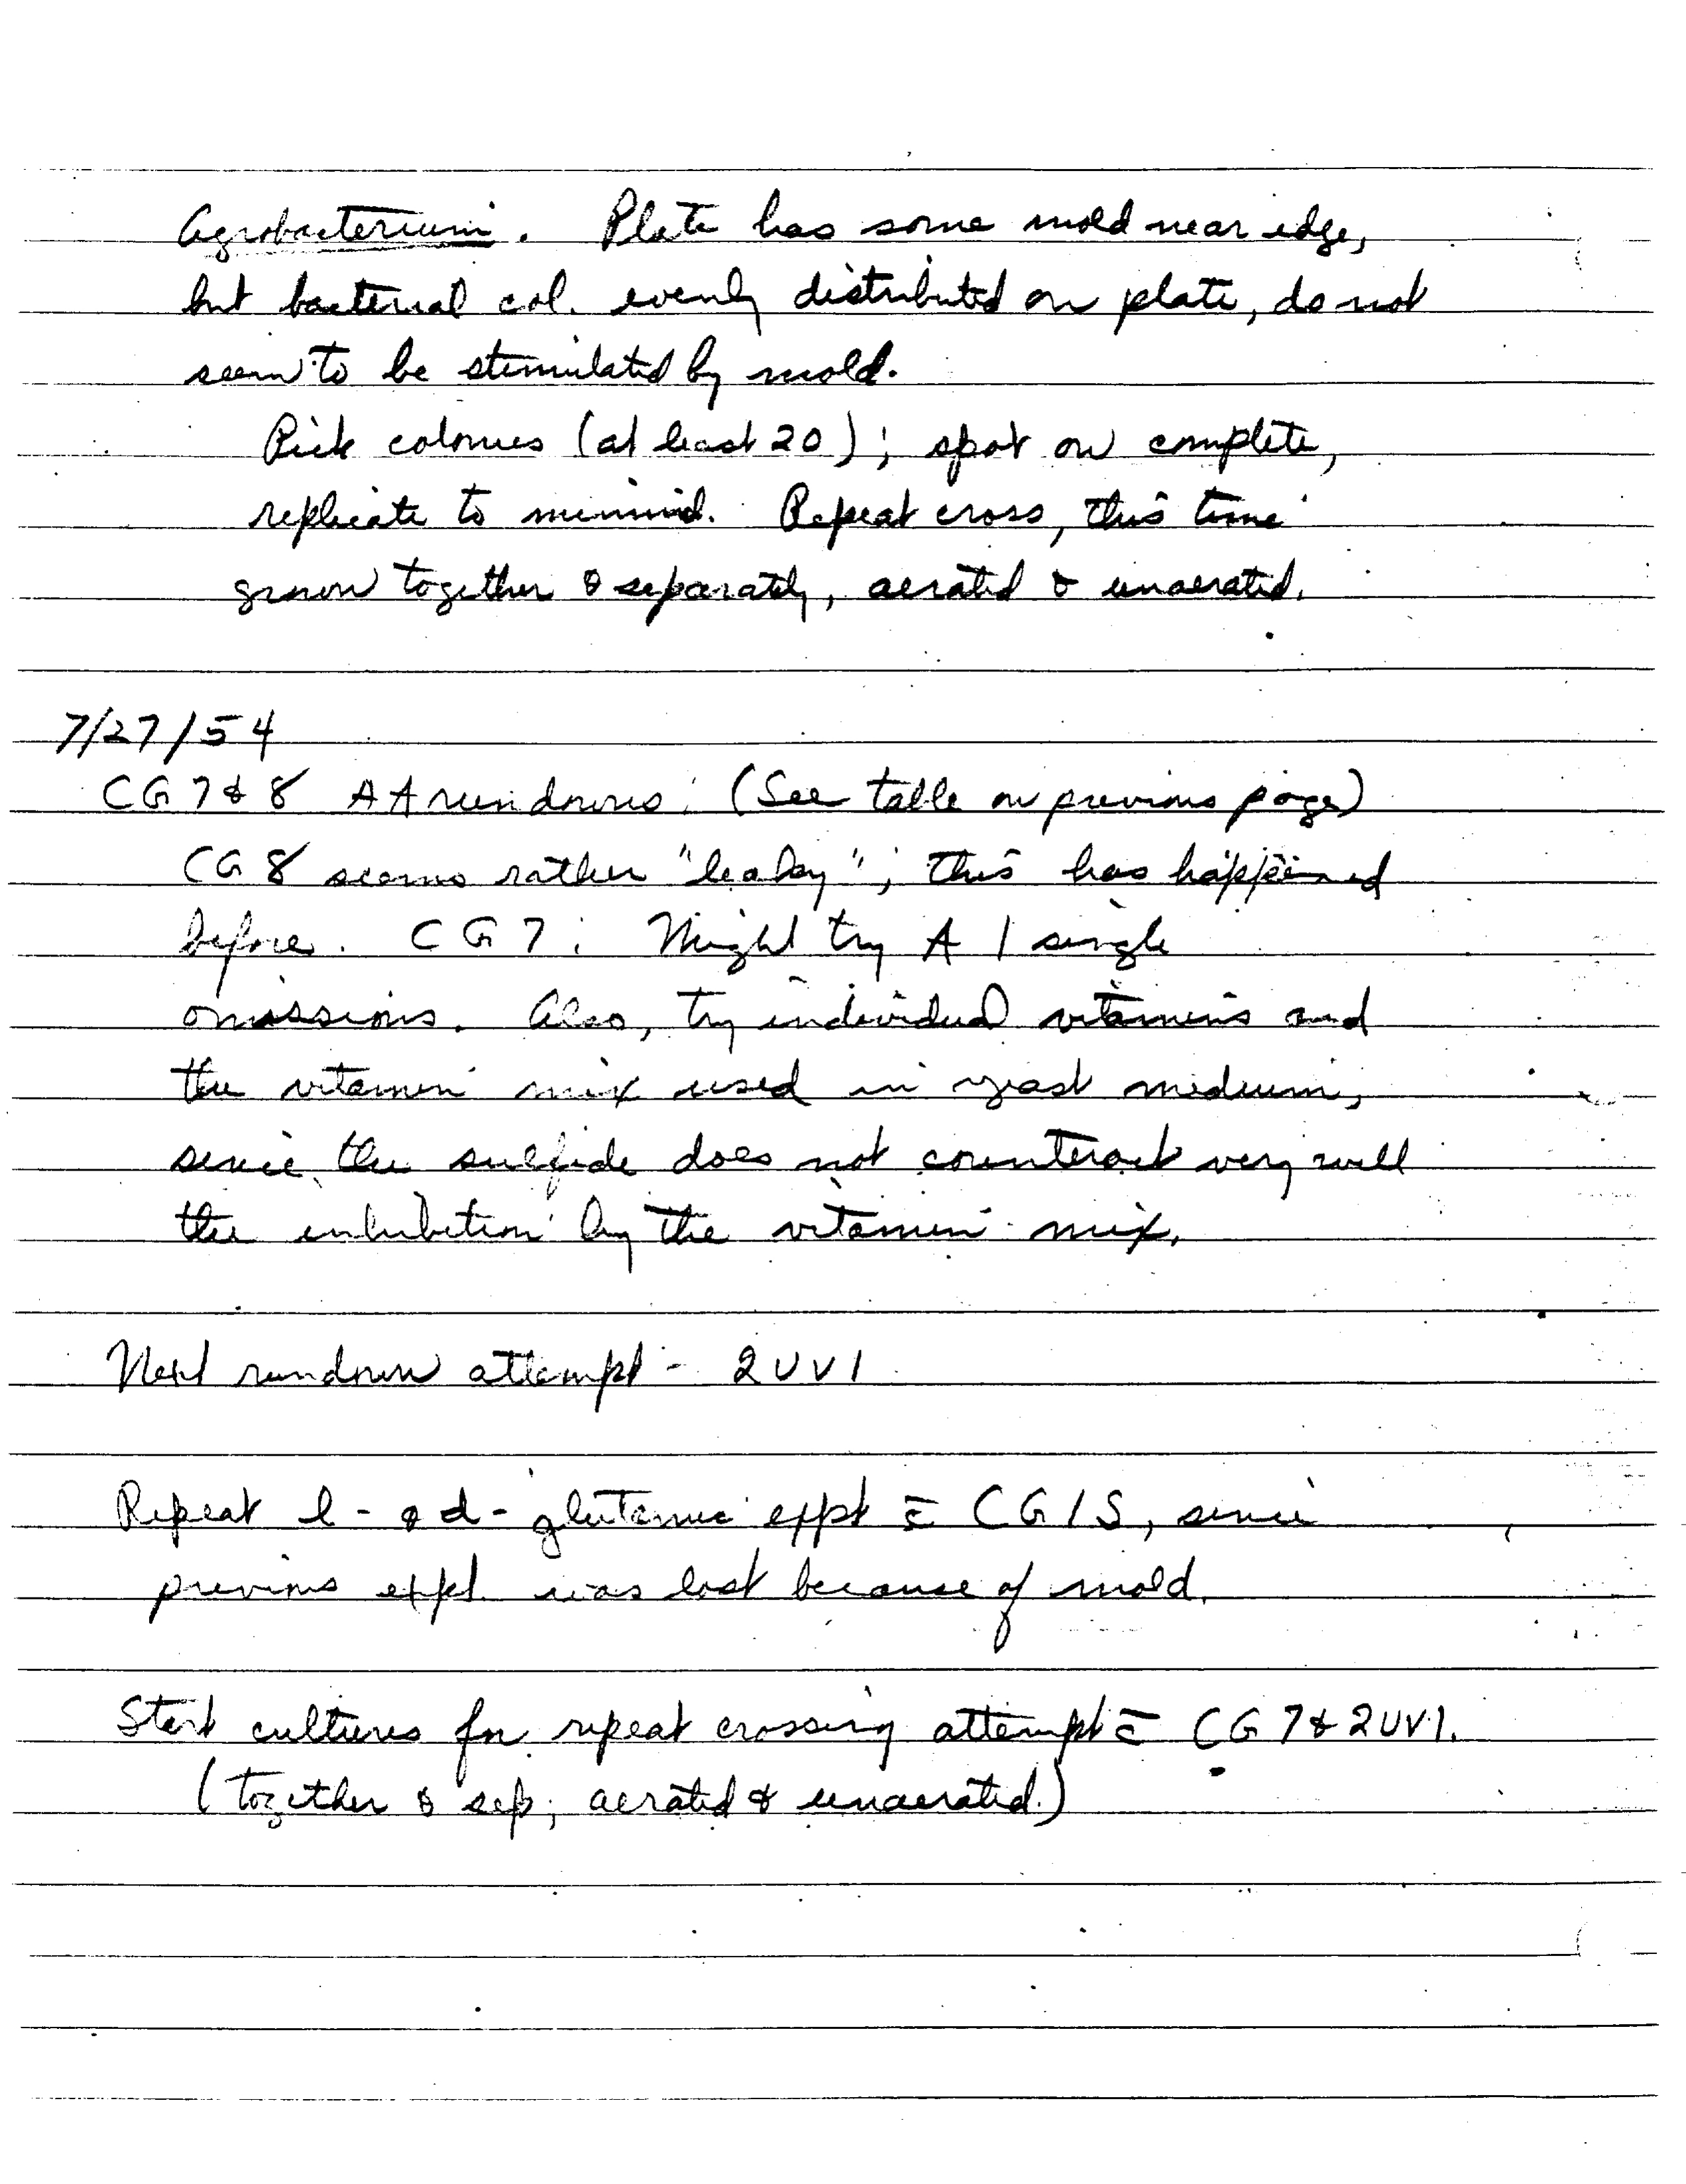 Agrobacterium. Plate has some mold near edge,
but bacterial col. evenly distributed on plate, do not
seem to be stimulated by mold.
Pick colonies (at least 20); spot on complete,
replicate to minimal. Repeat cross, this time
grown together & separately, aerated & unaerated.
7/27/54
CG 7 & 8 AA rundowns: (See table on previous page)
CG 8 seems rather "leaky"; this has happened
before. CG 7: Might try A 1 single
omissions. Also, try individual vitamins and
the vitamin mix used in yeast medium,
since the sulfide does not counteract very well
the inhibition by the vitamin mix.
Next rundown attempt - 2UV1
Repeat l- & d- glutamic expt c̄ CG1S, since
previous expt. was lost because of mold.
Start cultures for repeat crossing attempt c̄ CG 7 & 2UV1.
(together & sep; aerated & unaerated.)